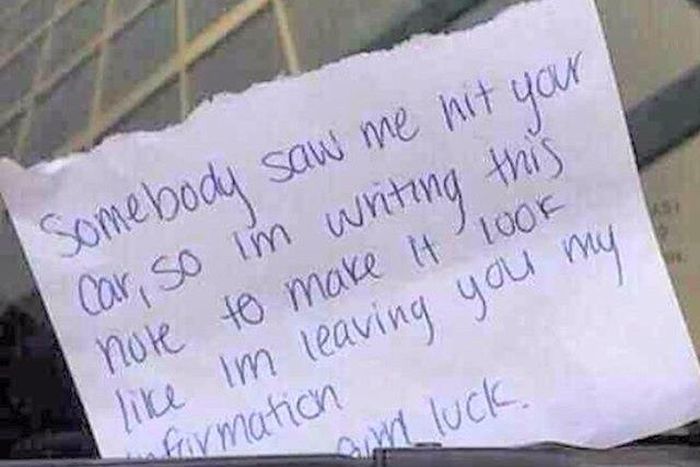 Somebody saw me hit your
car, so im writing this
note to make it look
like im leaving you my
infirmation
luck.